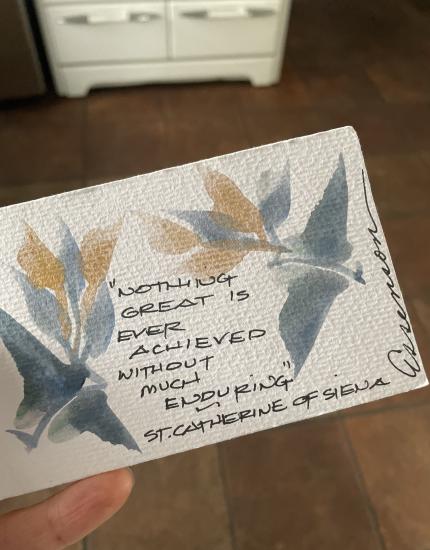 "NOTHING
GREAT IS
EVER
ACHIEVED
WITHOUT
MUCH
ENDURING"
ST. CATHERINE OF SIENA